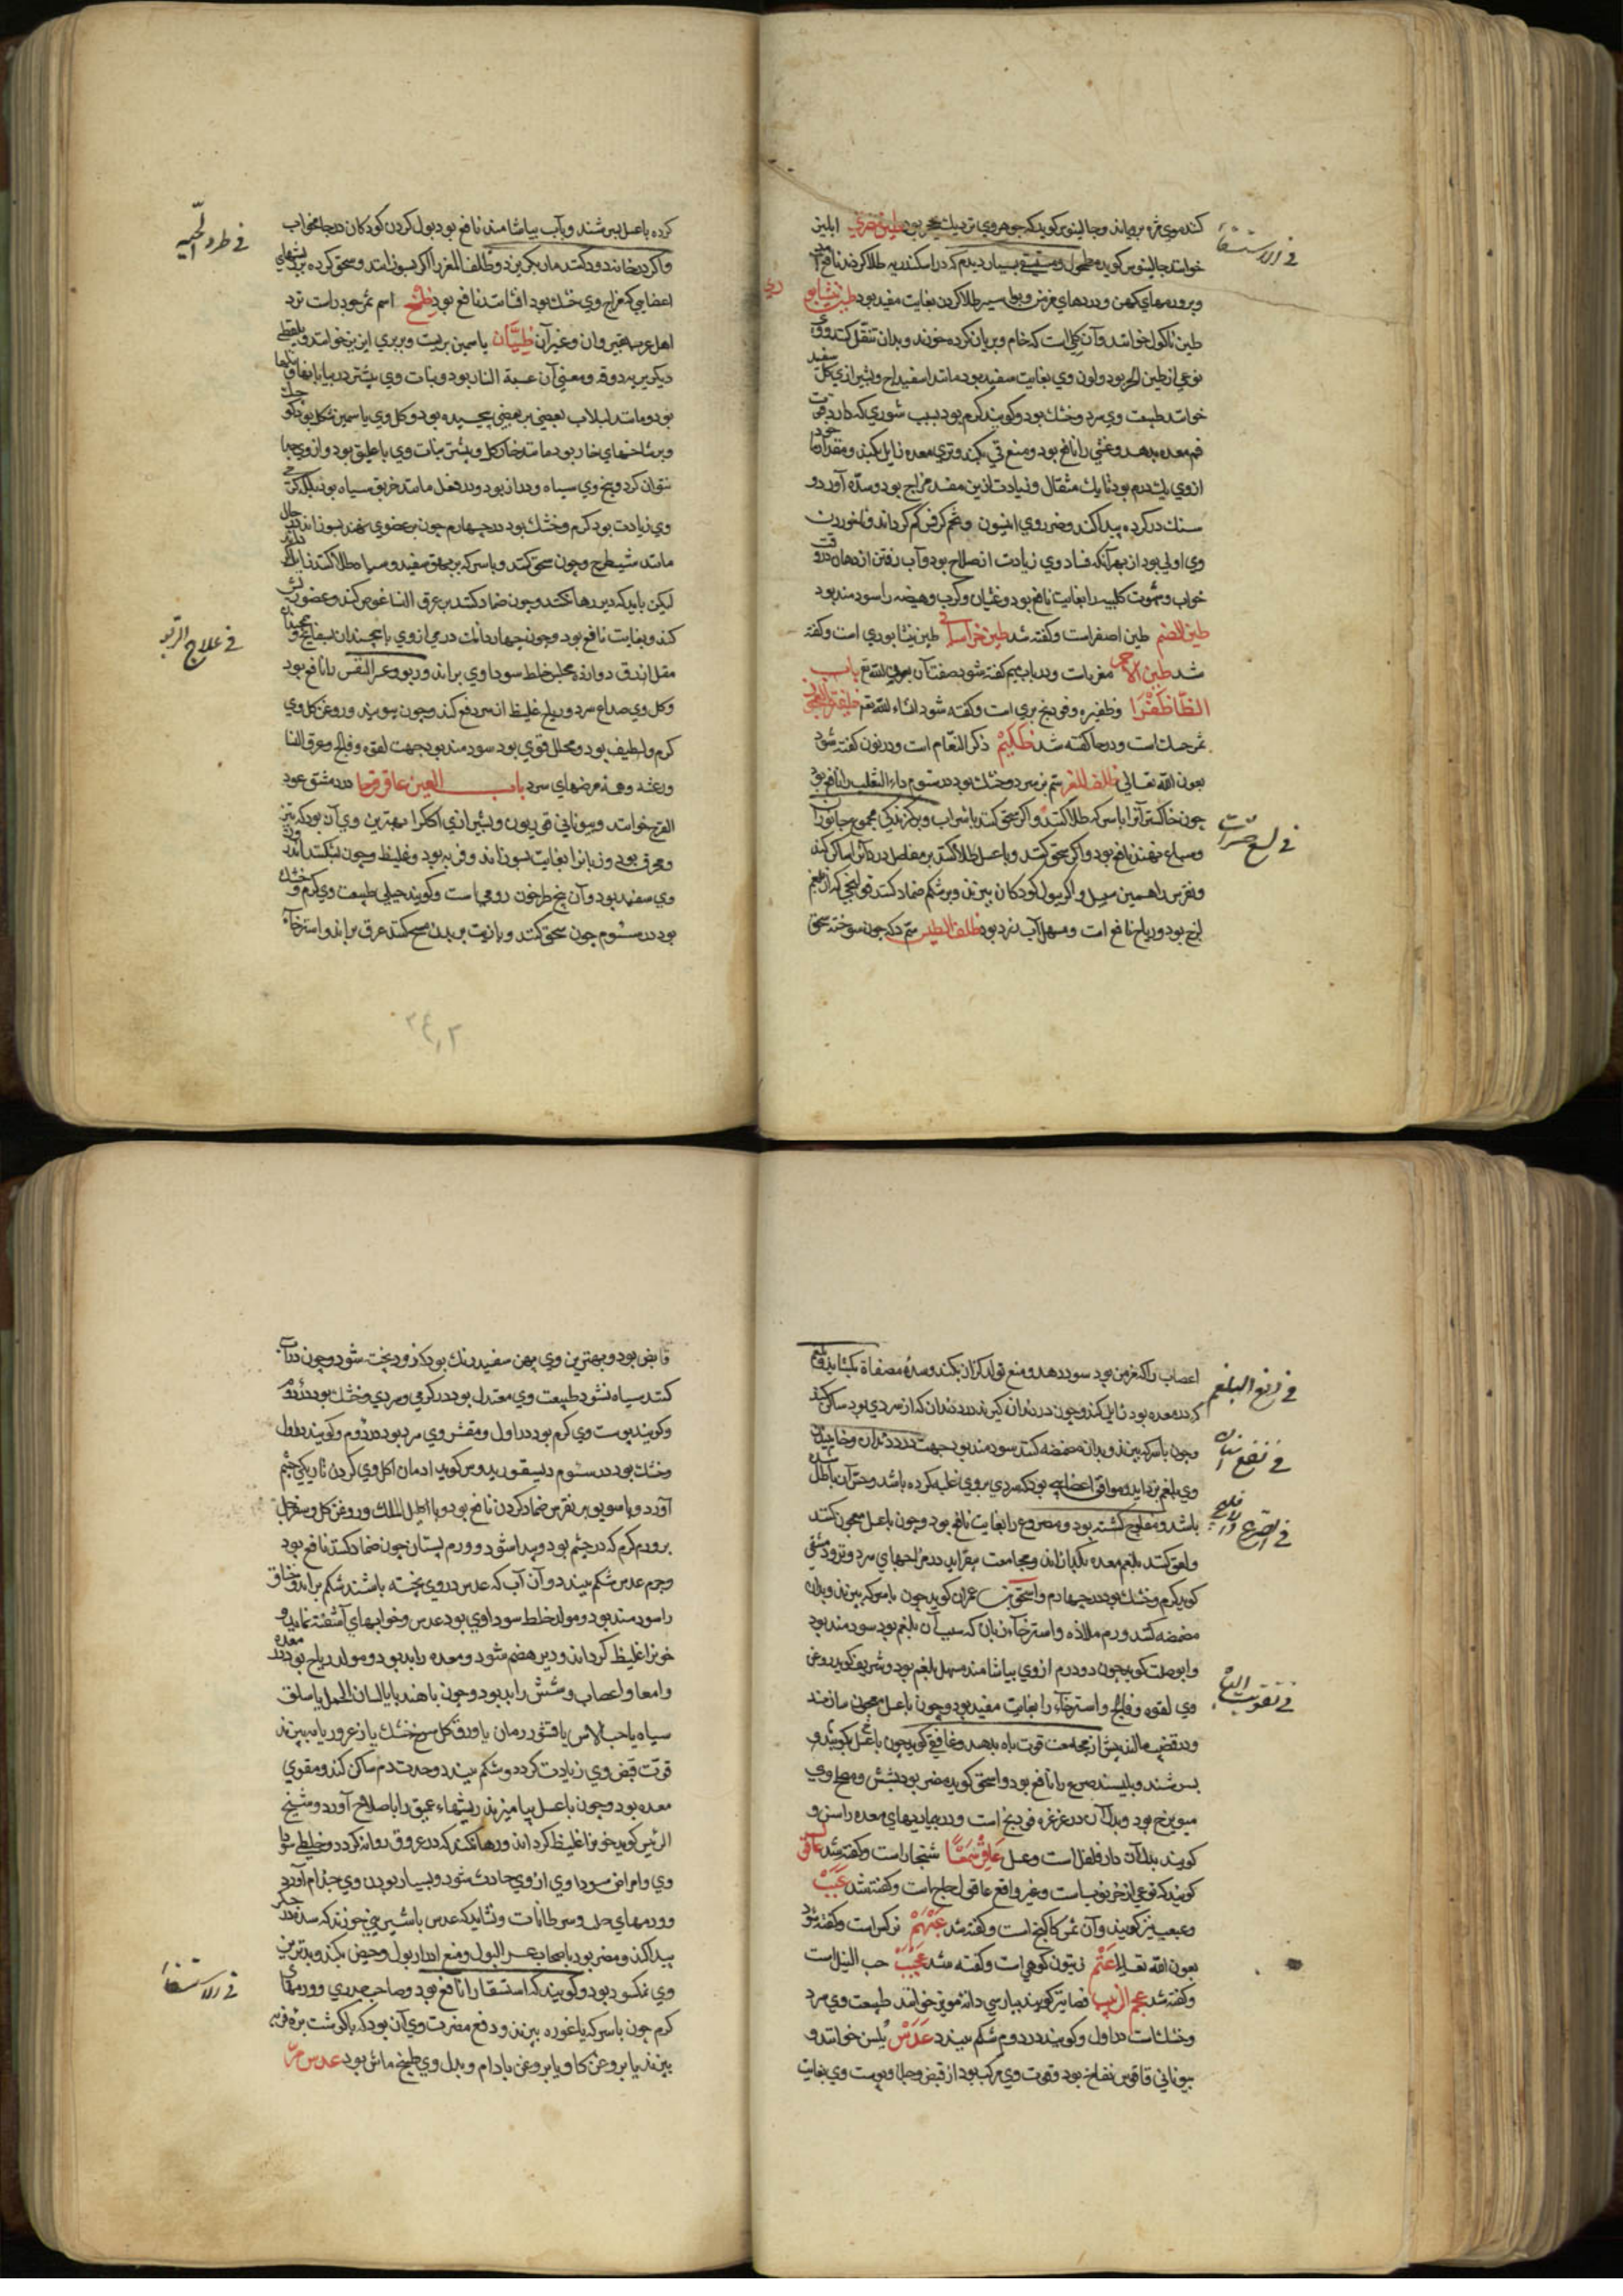 کند موی مژه برویاند و جالینوس گوید که جوهر وی نزدیک بحجر بود طین مصری ابلیز
خوانند جالینوس گوید مطحول و مستسقی بسیار دیدم که در اسکندریه طلا کردند نافع آمد
فی الاستسقا
و بر ورمهای کهن و دردهای مزمن و بواسیر طلا کردن بغایت مفید بود طین نیشابوری
طین ماکول خوانند و آن گلی است که خام و بریان کرده خورند و بدان تنقل کنند و وی
نوعی از طین الحر بود و لون وی بغایت سفید بود مانند اسفیداج و بشیرازی گل سفید
خوانند طبیعت وی سرد و خشک بود و گویند گرم بود بسبب شوری که دارد قوت
فم معده بدهد و غثی را نافع بود و منع قی بکند و تری معده زایل بکند و مقدار ماخوذ
از وی یک درم بود تا یک مثقال و زیادت ازین مفسد مزاج بود و سده آورد و
سنک در گرده پیدا کند و ضرر وی انیسون و تخم کرفس کم کرداند و ناخوردن
وی اولی بود از بهر آنکه فساد وی زیادت از صلاح بود و آب رفتن از دهان در وقت
خواب و شهوت کلبیه را بغایت نافع بود و غثیان و کرب و هیضه را سودمند بود
طین الصنم طین اصفر است و گفته شد طین خراسانی طین نیشابوری است و گفته
شد طین الاحمر مغره است و در باب میم گفته شود صفت آن بعون الله تع باب
الظا ظفرا و ظفیره قودنج بری است و گفته شود انشاء الله تع
ثمر حسک است و در حا گفته شد ظلیم ذکر النعام است و در نون گفته شود
بعون الله تعالی ظلف المعز سم بز سرد و خشک بود در سوم داء الثعلب را نافع بود
چون خاکستر آنرا با سرکه طلا کنند و اگر سحق کنند با شراب و بر گزندگی مجموع جانوران
فی لسع حشرات
و سباع نهند نافع بود و اگر سحق کنند و با عسل طلا کنند بر مفاصل درد آن ساکن کند
و نقرس را همین سبیل و اگر ببول کودکان بپزند و بر شکم ضماد کنند قولنجی که از بلغم
لزج بود و ریاح نافع است و مسهل آب زرد بود ظلف الطیس سم تکه چون سوخته سحق
کرده با عسل بسرشند و بآب بیاشامند نافع بود بول کردن کودکان در جامه خواب
فی طرد الحیه
و اگر در خانه دود کنند ماران بگریزند و ظلف المعز را اگر بسوزانند و سحق کرده بر ریشهای
اعضایی که مزاج وی خشک بود افشانند نافع بود ظمخ اسم ثمر جودرات نزد
اهل عرب مصر و قیروان و غیر آن ظیان یاسمین بریست و بربری ازیر خوانند و بلفظی
دیگر یبردوقه و معنی آن عسبة النار بود و نبات وی بیشتر در بیابانها و تلها
بود و مانند لبلاب بعضی بر بعضی پیچیده بود و گل وی یاسمین شکل بود کوچک
و بر شاخهای خار بود مانند خار گل و بیشتر نبات وی با علیق بود و از وی جدا
نتوان کرد و بیخ وی سیاه و دراز بود و در فعل مانند خربق سیاه بود بلکه گرمی
وی زیادت بود گرم و خشک بود در چهارم چون بر عضوی نهند بسوزاند در حال
مانند شیطرج و چون سحق کنند و با سرکه بر بهق سفید و سیاه طلا کنند زایل گرداند
لیکن باید که دیر رها نکنند و چون ضماد کنند بر عرق النسا غوص کند و عضو ریش
فی علاج الربو
کند و بغایت نافع بود و چون چهار دانک درمی از وی با همچندان بسفایج و همچندان
مقل ازرق در آن ده مجلس خلط سوداوی براند و ربو و عسر النفس را نافع بود
و گل وی صداع سرد و ریاح غلیظ از سر دفع کند و چون ببویند و روغن گل وی
گرم و لطیف بود و محلل قوی بود سودمند بود جهت لقوه و فالج و عرق النسا
و رعشه و همه مرضهای سرد باب العین عاقرقرحا در دمشق عود
القرح خوانند و بیونانی قوریون و بشیرازی اکلکرا و بهترین وی آن بود که تیز
و محرق بود و زبانرا بغایت بسوزاند و فربه بود و غلیظ و چون بشکنند اندرون
وی سفید بود و آن بیخ طرخون رومی است و گویند جبلی طبیعت وی گرم و خشک
بود در سوم چون سحق کنند و با زیت بر بدن مسح کنند عرق براند و استرخاء
اعصاب را که مزمن بود سود دهد و منع تولد کزاز بکند و سده مصفاة بگشاید و بلغم
فی دفع البلغم
که در معده بود زایل کند و چون در دندان گیرند درد دندان که از سردی بود ساکن کند
و چون با سرکه بپزند و بدان مضمضه کنند سودمند بود جهت درد دندان و خاییدن
فی نفع دندان
وی بلغم بزداید و موافق اعضایی بود که سردی بر وی غلبه کرده باشد و حس آن باطل شده
فی الصرع و الفالج
باشد و مفلوج گشته بود و مصروع را بغایت نافع بود و چون با عسل معجون کنند
و لعوق کنند بلغم معده بگدازاند و مجامعت بیفزاید در مزاجهای سرد و تر و دمشقی
گوید گرم و خشک بود در چهارم و اسحق بن عمران گوید چون با سرکه بپزند و بدان
مضمضه کنند ورم ملاذه و استرخاء زبان که سبب آن بلغم بود سودمند بود
و ابو صلت گوید چون دو درم از وی بیاشامند مسهل بلغم بود و شریف گوید روغن
فی تقویت الباه
وی لقوه و فالج و استرخاء را بغایت مفید بود و چون با عسل معجون سازند
و در قضیب مالند پیش از مجامعت قوت باه بدهد و غافقی گوید چون با عسل بکوبند و
بسرشند و بلیسند صرع را نافع بود و اسحق گوید مضر بود بشش و مصلح وی
میویزج بود و بدل آن در غرغره قودنج است و در بیماریهای معده راسن و
گویند بدل آن دار فلفل است و عسل عاقر شمعا شنجار است و گفته شد عاقول
گویند که نوعی از خرنوبست و غیر واقع عاقول حاج است و گفته شد عبب
و عبعب نیز گویند و آن ثمر کاکنج است و گفته شد عبهر نرگس است و گفته شود
بعون الله تعالی عتم زیتون کوهی است و گفته شد عجب حب النیل است
و گفته شد عجم الزبیب فصا نیز گویند بپارسی دانه مویز خوانند طبیعت وی سرد
و خشکست در اول و گویند در دوم شکم ببندد عدس بلسن خوانند و
بیونانی فاقوس نفاخ بود و قوت وی مرکب بود از قبض و جلا و پوست وی بغایت
قابض بود و بهترین وی پهن سفید رنک بود که زود پخته شود و چون در آب
کنند سیاه نشود طبیعت وی معتدل بود در گرمی و سردی و خشک بود در دوم
و گویند پوست وی گرم بود در اول و مقشر وی سرد بود در دوم و گویند در اول
و خشک بود در سوم دیسقوریدوس گوید ادمان اکل وی کردن تاریکی چشم
آورد و با سویق بر نقرس ضماد کردن نافع بود و با اکلیل الملک و روغن گل و سفرجل
بر ورم گرم که در چشم بود و پیدا شود و ورم پستان چون ضماد کنند نافع بود
و جرم عدس شکم ببندد و آن آب که عدس در وی پخته باشند شکم براند و خناق
را سودمند بود و مولد خلط سوداوی بود عدس و خوابهای آشفته نماید و
خون را غلیظ گرداند و دیر هضم شود و معده را بد بود و مولد ریاح بود در معده
و امعا و اعصاب و شش را بد بود و چون با هندبا یا لسان الحمل یا سلق
سیاه یا حب الاس یا قشور رمان یا ورق گل سرخ خشک یا زعرور یا به بپزند
قوت قبض وی زیادت گردد و شکم ببندد و حدت دم ساکن کند و مقوی
معده بود و چون با عسل بیامیزند ریشهاء عمیق را باصلاح آورد و شیخ
الرئیس گوید خون را غلیظ گرداند و رها نکند که در عروق روانه گردد و خلطی سوداوی
وی و امراض سوداوی از وی حادث شود و بسیار خوردن وی جذام آورد
و ورمهای صلب و سرطانات و نشاید که عدس با شیرینی خورند که سده در جگر
پیدا کند و مضر بود باصحاب عسر البول و منع ادرار بول و حیض بکند و بدترین
فی الاستسقا
وی نمکسود بود و گویند که استسقا را نافع بود و صاحب جدری و ورمهای
گرم چون با سرکه یا غوره بپزند و دفع مضرت وی آن بود که با گوشت بره فربه
بپزند یا بروغن گاو یا بروغن بادام و بدل وی طبیخ ماش بود عدس مر